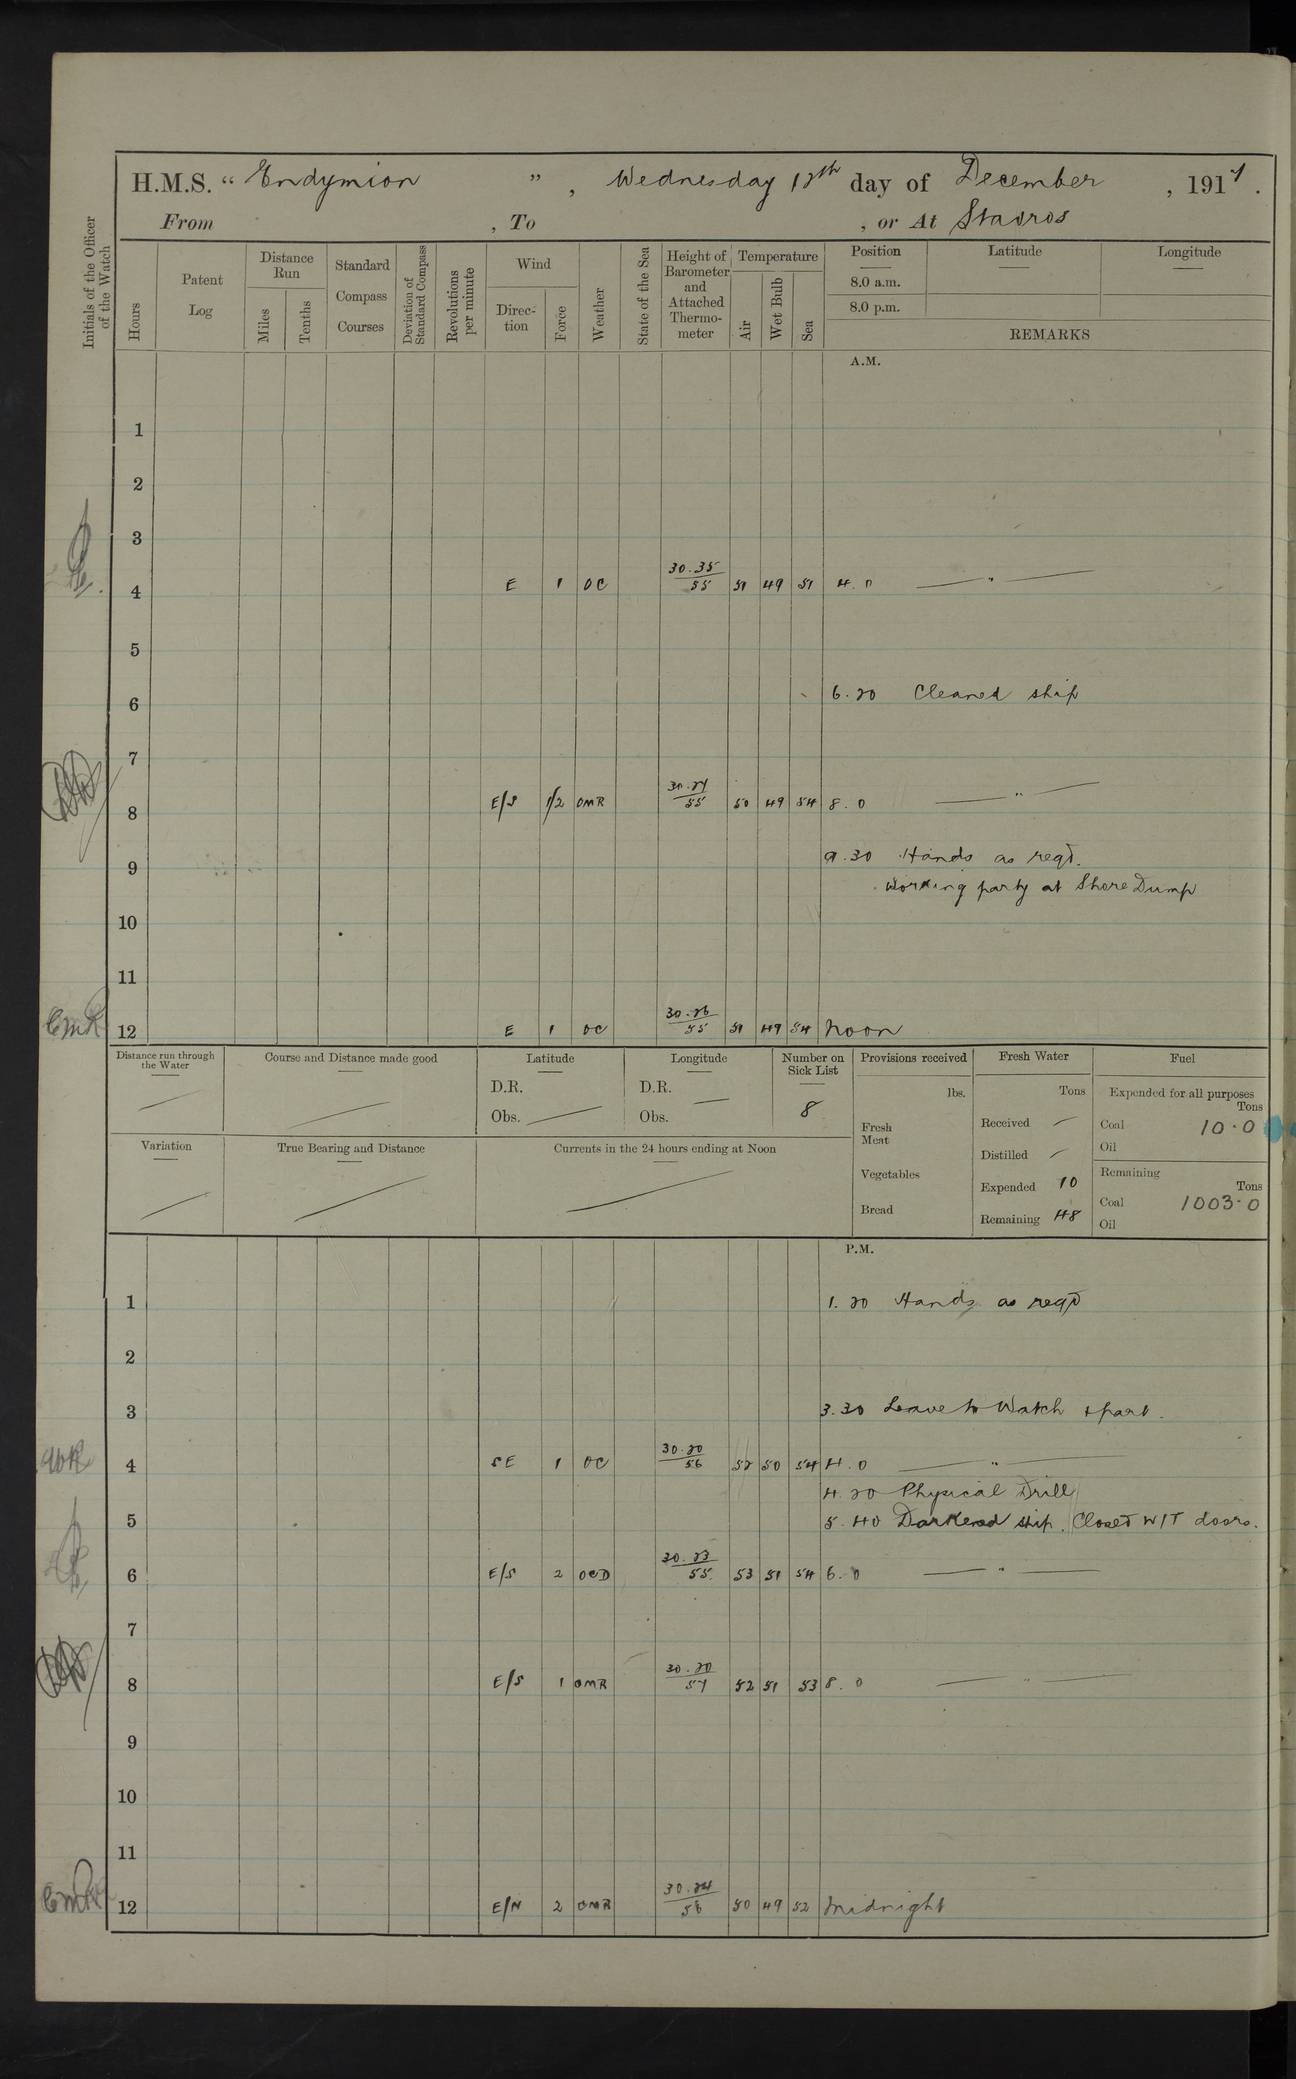 H.M.S. “ Endymion ” , Wednesday 12th day of December , 1917 .
From , To , or At Stavros
Initials of the Officer of the Watch
Hours
Patent Log
Distance Run
Miles
Tenths
Standard Compass Courses
Deviation of Standard Compass
Revolutions per minute
Wind
Direc-tion
Force
Weather
State of the Sea
Height of Barometer and Attached Thermo-meter
Temperature
Air
Wet Bulb
Sea
Position Latitude Longitude
8.0 a.m.
8.0 p.m.
REMARKS
A.M.
1
2
3
4 E 1 OC 30.35/55 51 49 51 4.0 — " —
5
6 6.20 Cleaned ship
7
8 E/S 1/2 OMR 30.27/55 50 49 54 8.0 — " —
9 9.30 Hands as reqd.
Working party at Shore Dump
10
11
CMR 12 E 1 OC 30.26/55 51 49 54 Noon
Distance run through the Water
Course and Distance made good
Latitude
D.R.
Obs.
Longitude
D.R.
Obs.
Number on Sick List
8
Variation
True Bearing and Distance
Currents in the 24 hours ending at Noon
Provisions received
lbs.
Fresh Meat
Vegetables
Bread
Fresh Water
Tons
Received
Distilled
Expended 10
Remaining 48
Fuel
Expended for all purposes
Tons
Coal 10.0
Oil
Remaining
Tons
Coal 1003.0
Oil
P.M.
1 1.20 Hands as reqd
2
3 3.30 Leave to Watch & part.
4 SE 1 OC 30.20/56 52 50 54 4.0 — " —
4.20 Physical Drill
5 5.40 Darkened ship. Closed W/T doors.
6 E/S 2 OCD 30.23/55 53 51 54 6.0 — " —
7
8 E/S 1 OMR 30.20/57 52 51 53 8.0 — " —
9
10
11
12 E/N 2 OMR 30.24/56 50 49 52 Midnight